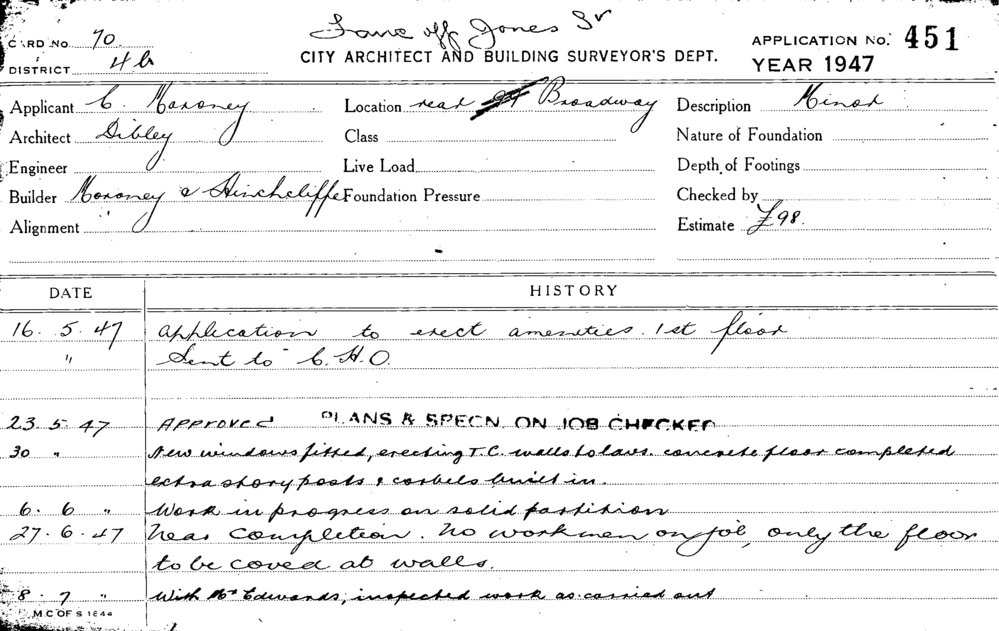 Lane off Jones St
CARD NO. 70
CITY ARCHITECT AND BUILDING SURVEYOR'S DEPT.
APPLICATION NO. 451
DISTRICT 4b
YEAR 1947
Applicant C. Maroney
Location rear Broadway
Description Minor
Architect Sibley
Class
Nature of Foundation
Engineer
Live Load
Depth of Footings
Builder Maroney & Hinchcliffe
Foundation Pressure
Checked by
Alignment
Estimate £98.
DATE HISTORY
16. 5. 47 Application to erect amenities. 1st floor
" Sent to C.H.O.
23. 5. 47 APPROVED PLANS & SPECN. ON JOB CHECKED
30 " New windows fitted, erecting T.C. walls to lavs. concrete floor completed
extra story posts & corbels built in.
6. 6 " Work in progress on solid partition
27. 6. 47 Near completion. No workmen on job, only the floor
to be coved at walls.
8. 7 " With Mr Edwards, inspected work as carried out
M.C OF S 1844